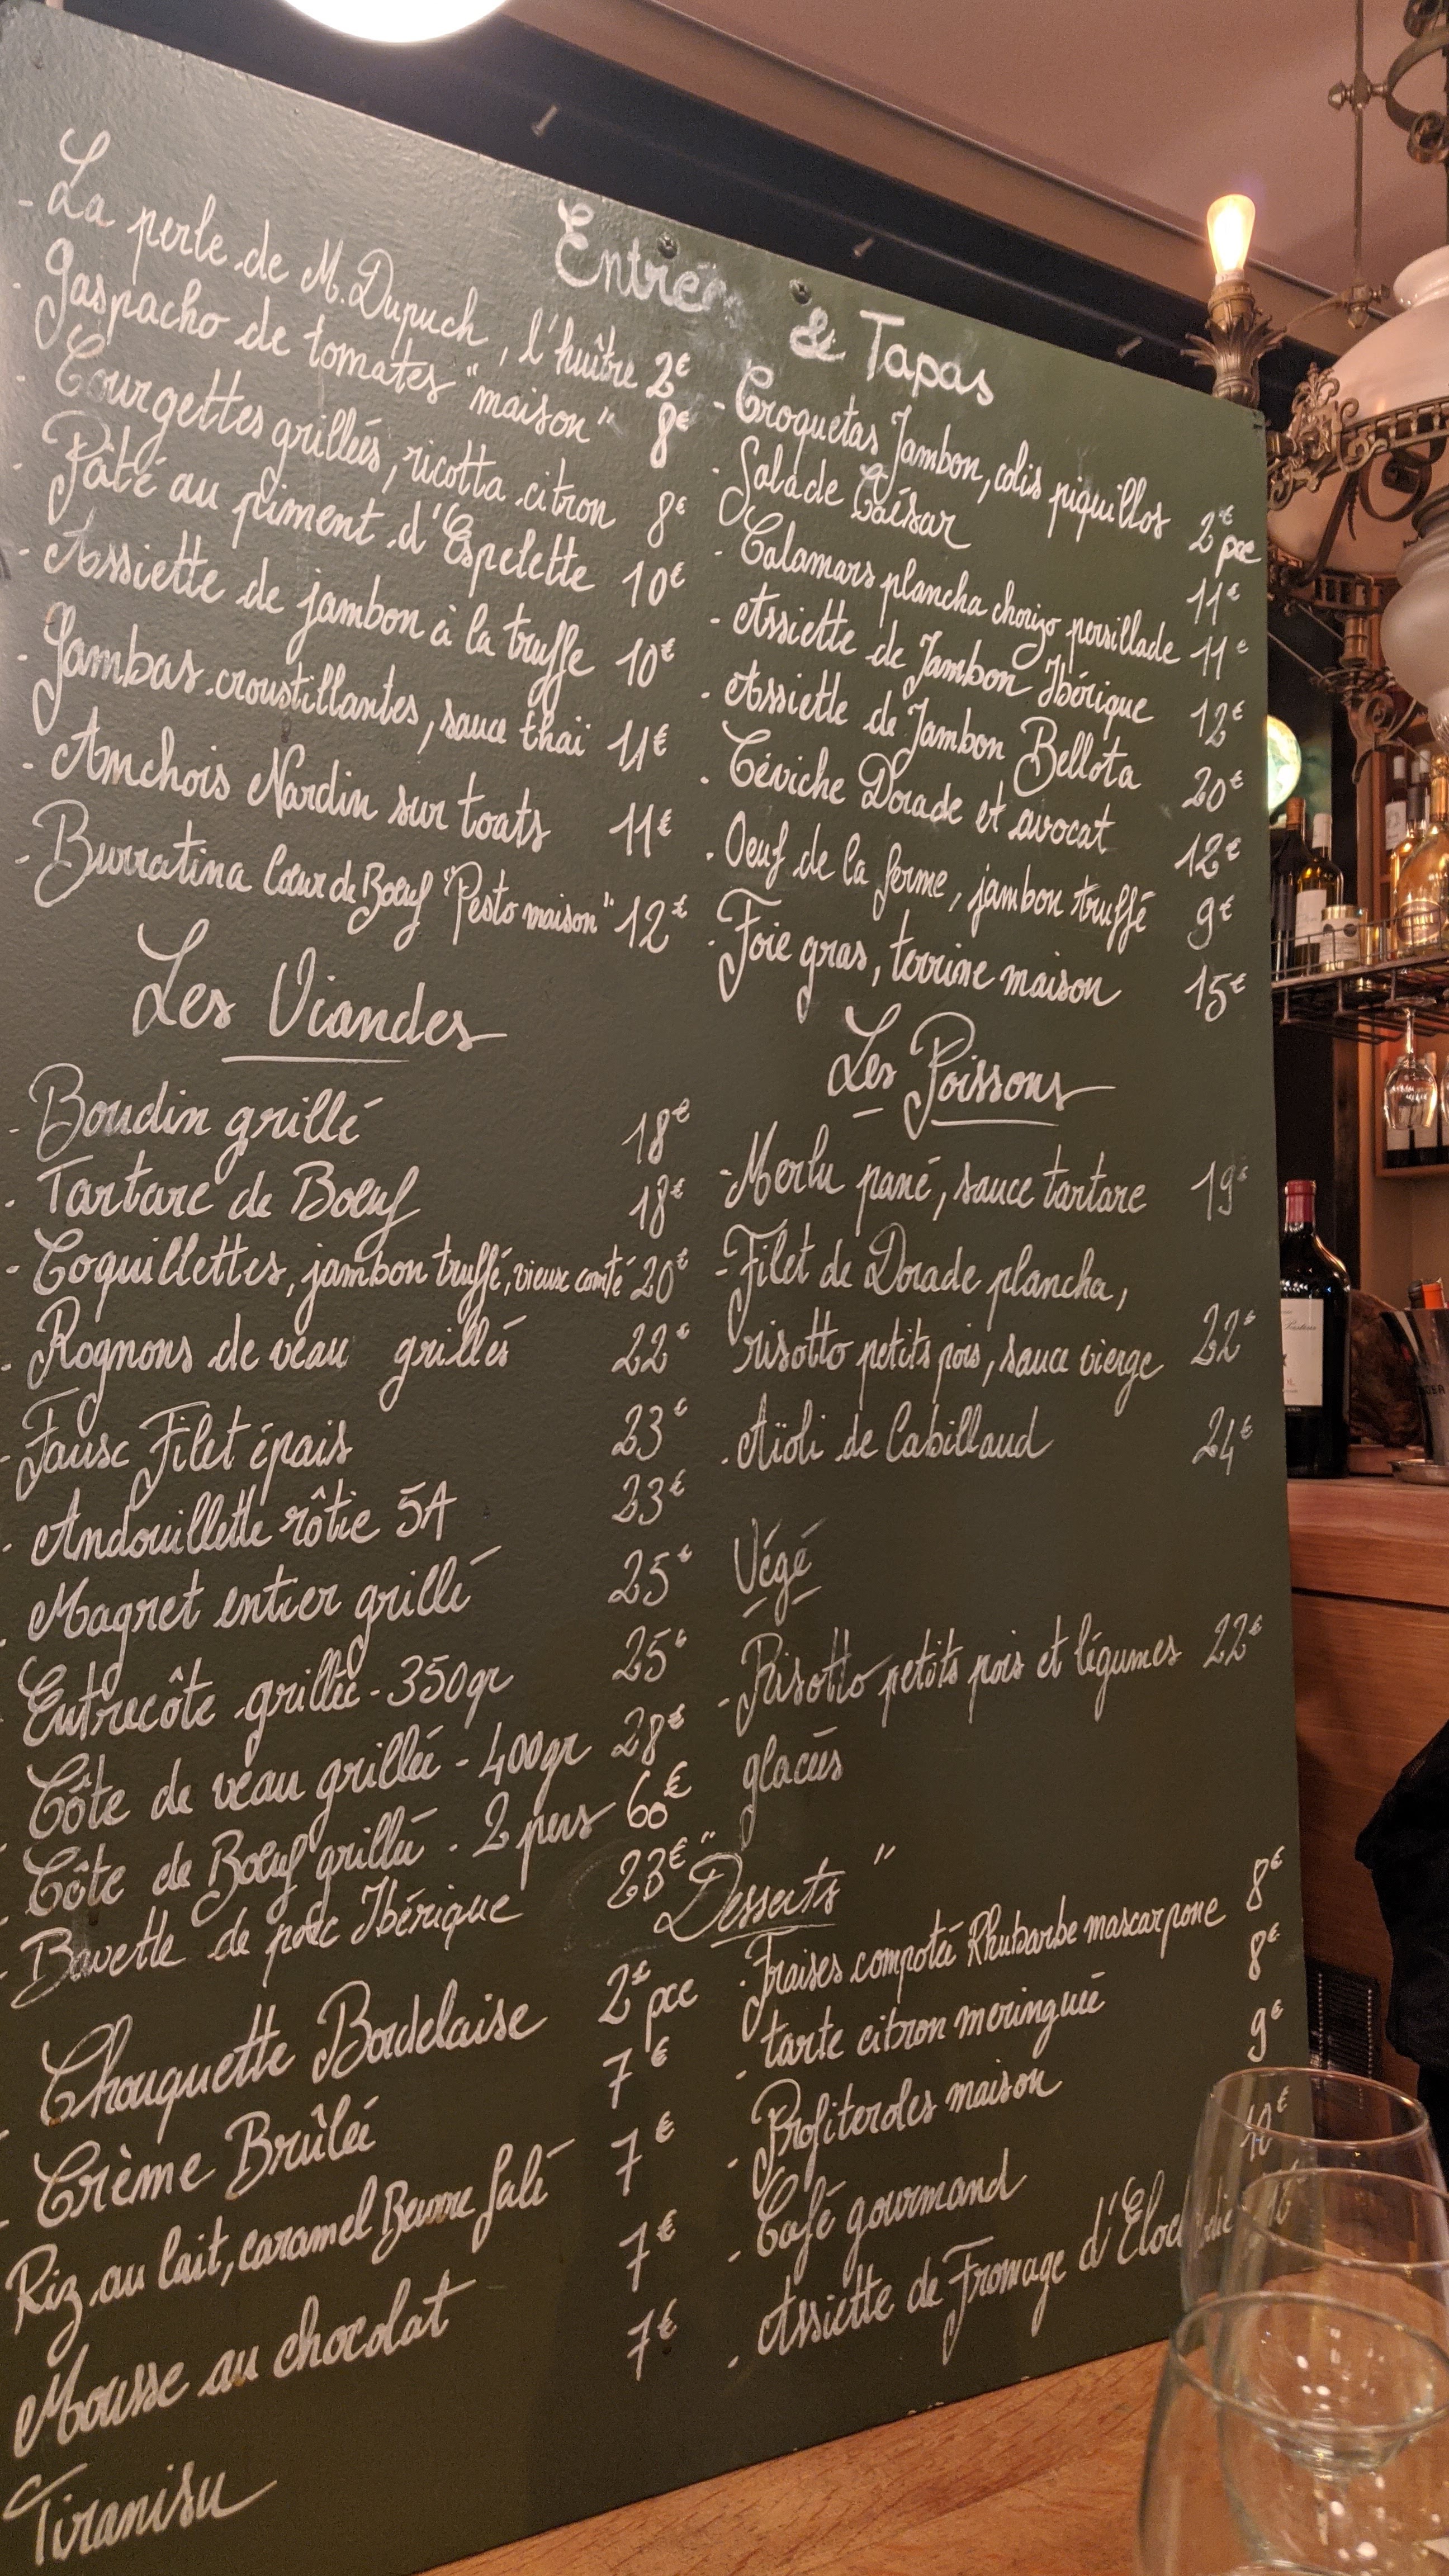 Entrées & Tapas
- La perle de M. Dupuch, l'huître 2€
- Gaspacho de tomates "maison" 8€
- Courgettes grillées, ricotta citron 8€
- Pâté au piment d'Espelette 10€
- Assiette de jambon à la truffe 10€
- Gambas croustillantes, sauce thaï 11€
- Anchois Nardin sur toats 11€
- Burratina Cœur de Bœuf "Pesto maison" 12€
- Croquetas Jambon, colis piquillos 2€ pce
- Salade Caésar 11€
- Calamars plancha chorizo persillade 11€
- Assiette de Jambon Ibérique 12€
- Assiette de Jambon Bellota 20€
- Céviche Dorade et avocat 12€
- Oeuf de la ferme, jambon truffé 9€
- Foie gras, terrine maison 15€
Les Viandes
- Boudin grillé 18€
- Tartare de Bœuf 18€
- Coquillettes, jambon truffé, vieux comté 20€
- Rognons de veau grillés 22€
- Faux Filet épais 23€
- Andouillette rôtie 5A 23€
- Magret entier grillé 25€
- Entrecôte grillée - 350gr 25€
- Côte de veau grillée - 400gr 28€
- Côte de Bœuf grillée - 2 pers 60€
- Bavette de porc Ibérique 23€
Les Poissons
- Merlu pané, sauce tartare 19€
- Filet de Dorade plancha,
risotto petits pois, sauce vierge 22€
- Aïoli de Cabillaud 24€
Végé
- Risotto petits pois et légumes 22€
glacés
"Desserts"
- Chouquette Bordelaise 2€ pce
- Crème Brûlée 7€
Riz au lait, caramel Beurre Salé 7€
Mousse au chocolat 7€
Tiramisu 7€
- Fraises compotée Rhubarbe mascarpone 8€
- tarte citron meringuée 8€
- Profiteroles maison 9€
- Café gourmand 10€
- Assiette de Fromage